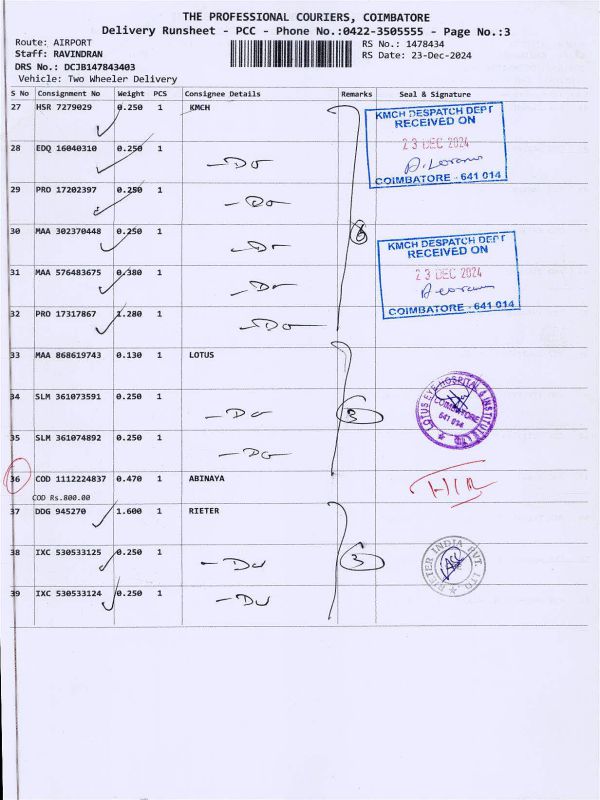 THE PROFESSIONAL COURIERS, COIMBATORE
Delivery Runsheet - PCC - Phone No.:0422-3505555 - Page No.:3
Route: AIRPORT
Staff: RAVINDRAN
DRS No.: DCJB147843403
Vehicle: Two Wheeler Delivery
RS No.: 1478434
RS Date: 23-Dec-2024
S No Consignment No Weight PCS Consignee Details Remarks Seal & Signature
27 HSR 7279029 0.250 1 KMCH
28 EDQ 16040310 0.250 1 -Do
29 PRO 17202397 0.250 1 -Do
30 MAA 302370448 0.250 1 -Do
31 MAA 576483675 0.380 1 -Do
32 PRO 17317867 1.280 1 -Do
6
KMCH DESPATCH DEPT
RECEIVED ON
23 DEC 2024
COIMBATORE - 641 014
KMCH DESPATCH DEPT
RECEIVED ON
23 DEC 2024
COIMBATORE - 641 014
33 MAA 868619743 0.130 1 LOTUS
34 SLM 361073591 0.250 1 -Do
35 SLM 361074892 0.250 1 -Do
3
LOTUS EYE HOSPITAL & INSTITUTE LTD
COIMBATORE
641 014
36 COD 1112224837 0.470 1 ABINAYA
COD Rs.800.00
37 DDG 945270 1.600 1 RIETER
38 IXC 530533125 0.250 1 -Do
39 IXC 530533124 0.250 1 -Do
3
RIETER INDIA PVT. LTD.